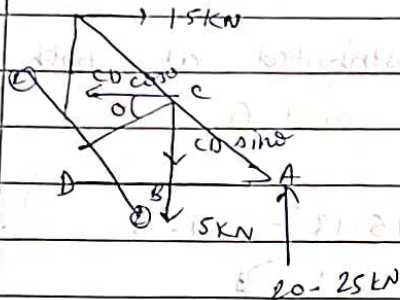 1.5KN
② CD cosθ C
θ
CD sinθ
D B A
② 5KN
20.25KN